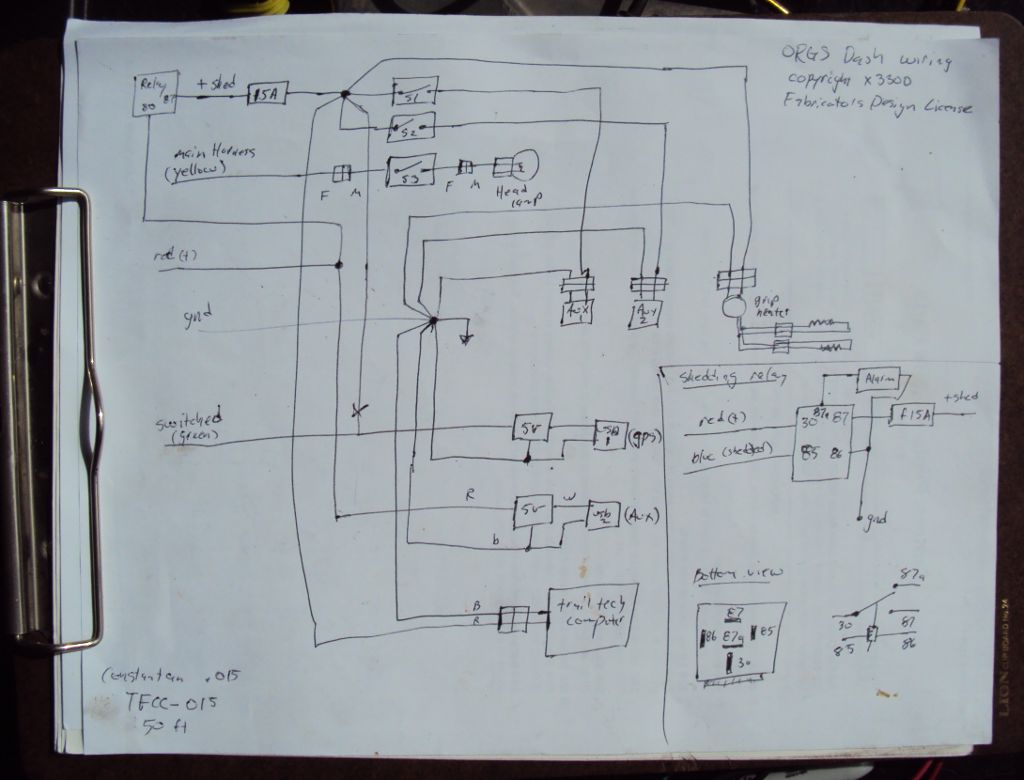 ORGS Dash wiring
copyright x3300
Fabricators Design License
Relay
87
80
+ shed
15A
S1
S2
main Harness
(yellow)
F M
S3
F M
Head
lamp
red (+)
gnd
Aux
1
Aux
2
grip
heater
switched
(Green)
5v
usb
1
(gps)
R
5v
w
usb
2
(Aux)
b
B
R
trail tech
computer
Constantan .015
TFCC-015
50 ft
Shedding relay
Alarm
red (+)
blue (shedded)
30 87a 87
85 86
f 15A
+shed
gnd
Bottom view
87
86 87a 85
30
87a
30
87
85
86
LION CLIPBOARD No.24